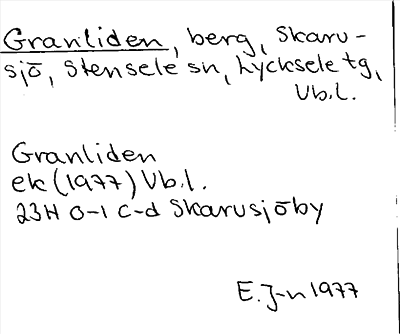 Granliden, berg, Skaru-
sjö, Stensele sn, Lycksele tg,
Vb.l.
Granliden
ek (1977) Vb.l.
23H 0-1 c-d Skarusjöby
E. J-n 1977